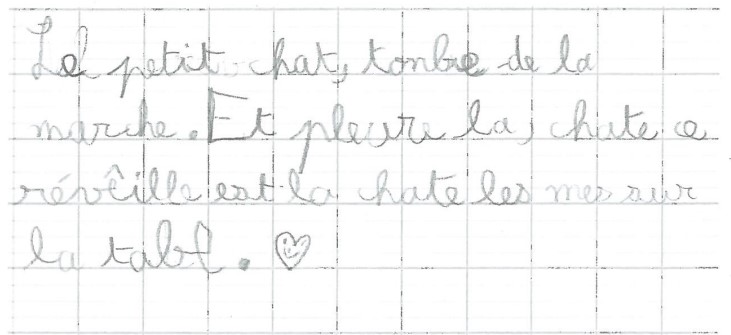 Le petit chat, tombe de la
marche. Et pleure la, chate ce
révêille est la chate les mes sur
la tabl. ♡